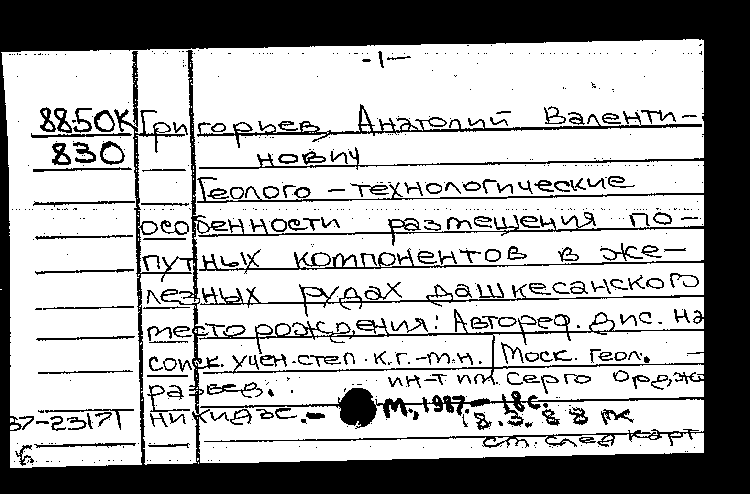 -1-
88-50К Григорьев, Анатолий Валенти-
830 нович
Геолого-технологические
особенности размещения по-
путных компонентов в же-
лезных рудах Дашкесанского
месторождения: Автореф. дис. на
соиск. учен. степ. к.г.-м.н. / Моск. геол. -
развед. ин-т им. Серго Орджо
37-23171 никидзе. - М., 1987. - 18 с.
18.3.88
ст. след карт